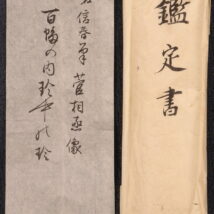 鑑定書
信春筆 菅相丞像
百幅の内珍中の珍